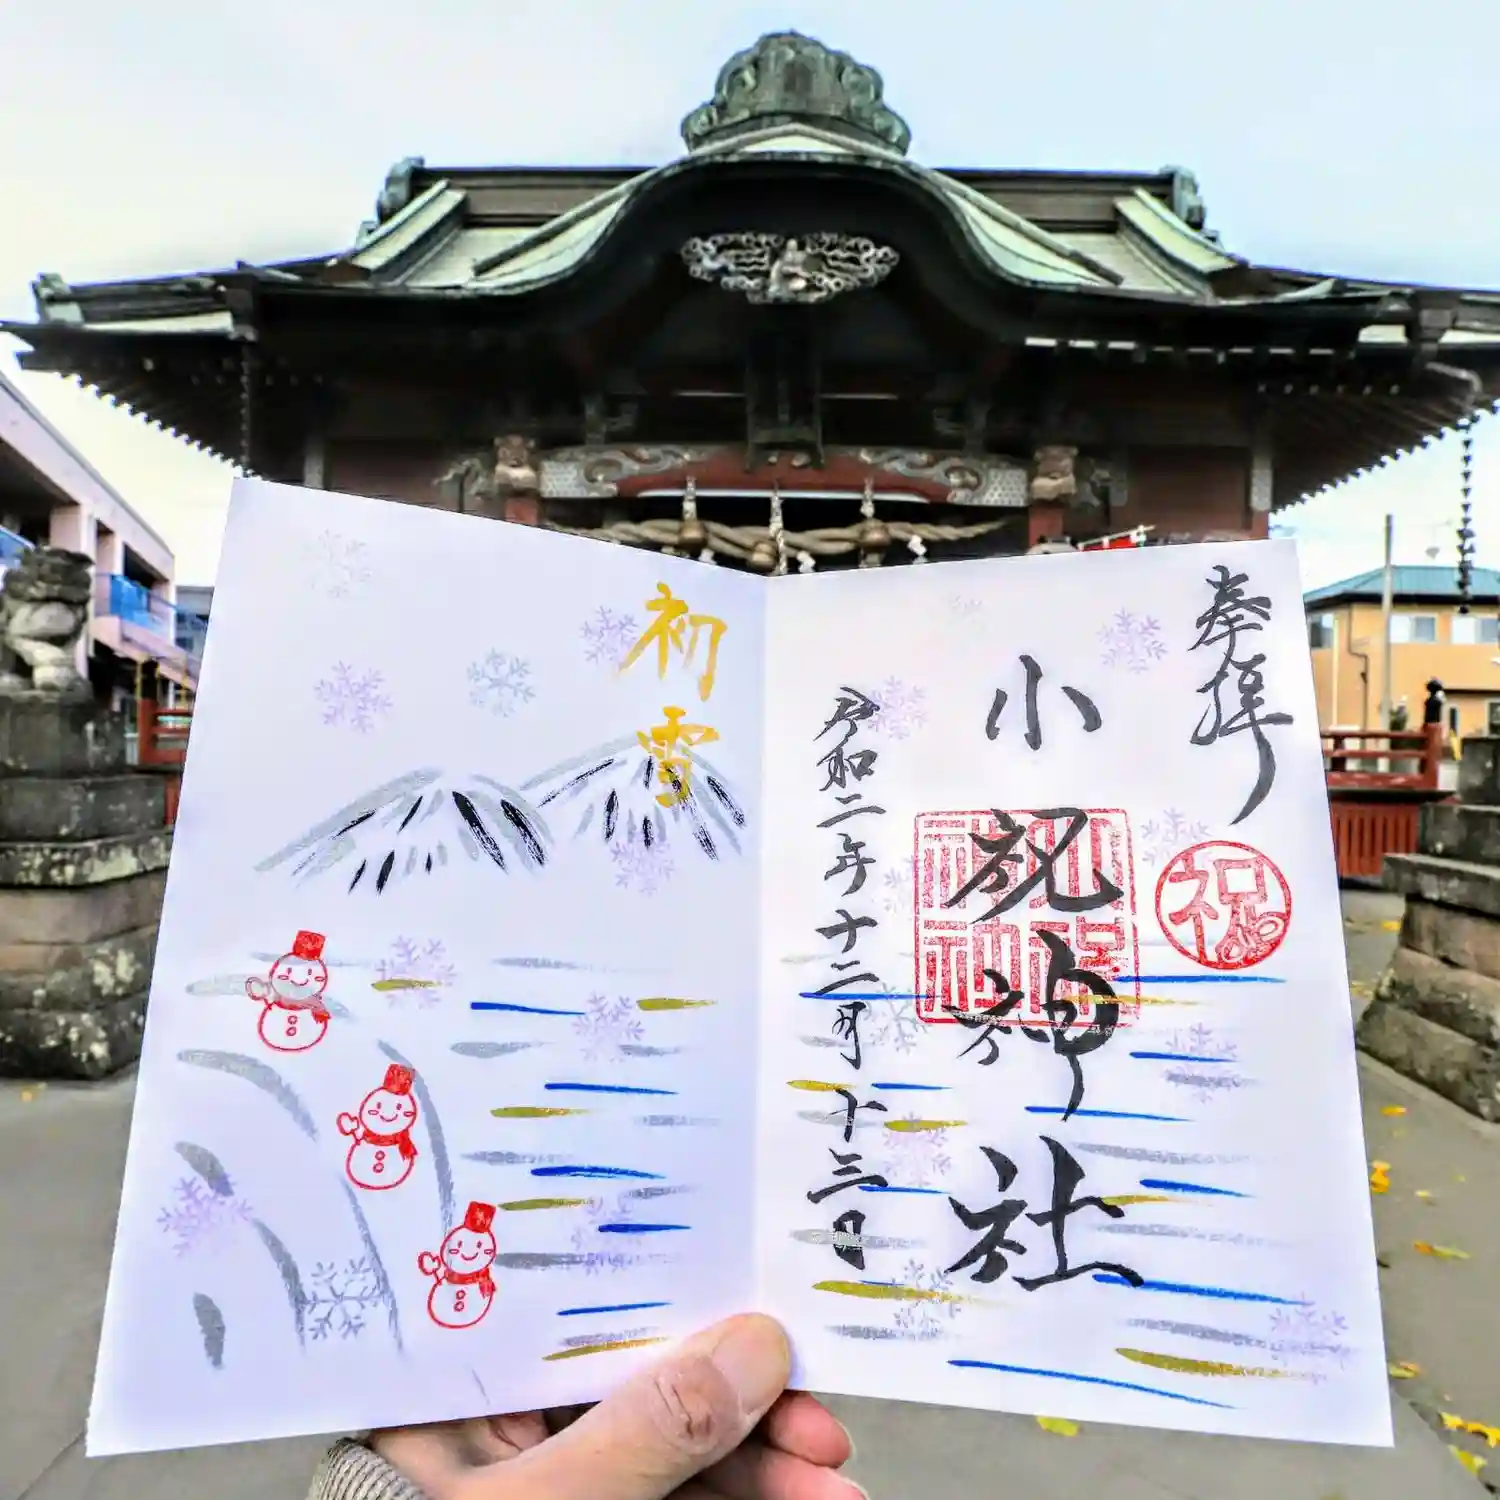 奉拝
祝
小祝神社
令和二年十二月十三日
初雪